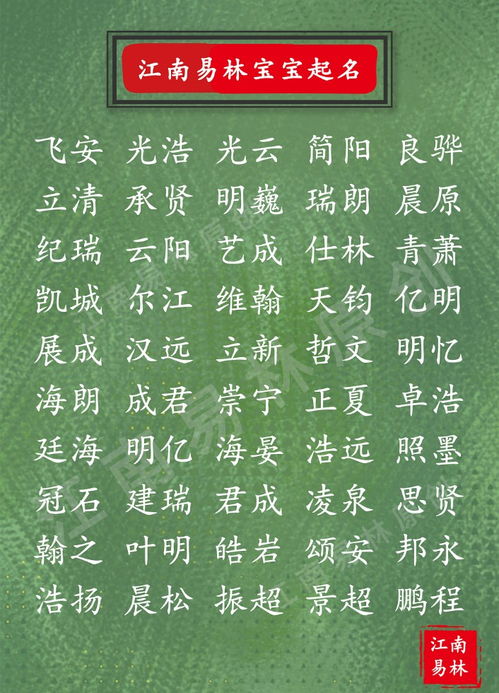 江南易林宝宝起名
飞安 光浩 光云 简阳 良骅
立清 承贤 明巍 瑞朗 晨原
纪瑞 云阳 艺成 仕林 青萧
凯城 尔江 维翰 天钧 亿明
展成 汉远 立新 哲文 明忆
海朗 成君 崇宁 正夏 卓浩
廷海 明亿 海晏 浩远 照墨
冠石 建瑞 君成 凌泉 思贤
翰之 叶明 皓岩 颂安 邦永
浩扬 晨松 振超 景超 鹏程
江南
易林
江南易林原创
江南易林原创
江南易林原创